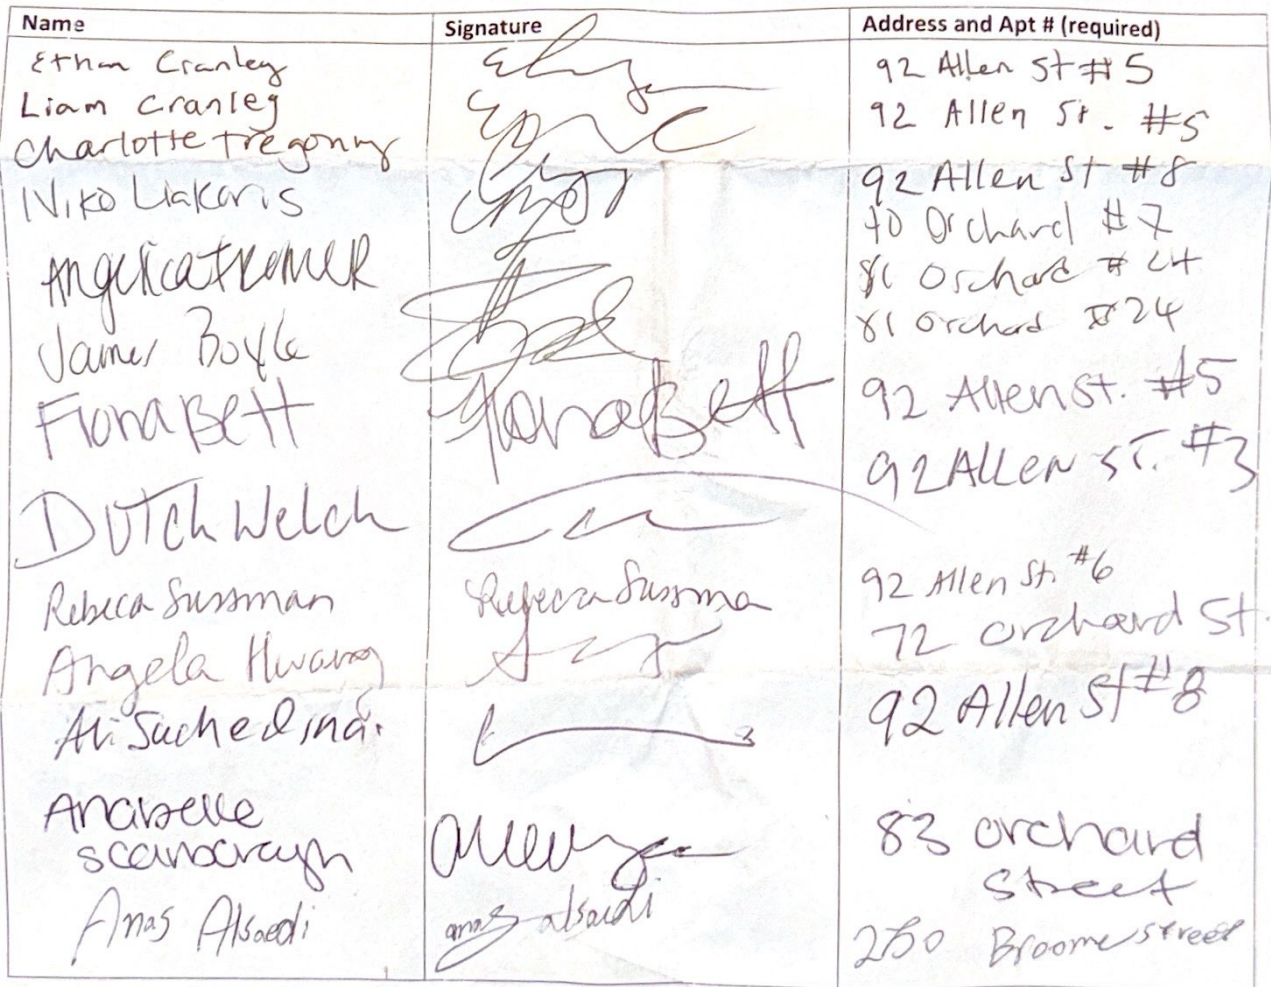 Name Signature Address and Apt # (required)
Ethan Cranley 92 Allen St #5
Liam Cranley 92 Allen St. #5
Charlotte Tregonny 92 Allen St #8
Niko Liakaris 70 Orchard #7
Angelica Tremer 81 Orchard #24
James Boyle 81 Orchard #24
Fiona Bett Fiona Bett 92 Allen St. #5
Dutch Welch 92 Allen St. #3
Rebeca Sussman Rebecca Sussma 92 Allen St. #6
Angela Hwang 72 Orchard St.
Ali Suchedina. 92 Allen St #8
Anabelle
scarborough 83 orchard
street
Anas Alsaedi anas alsaedi 250 Broome street